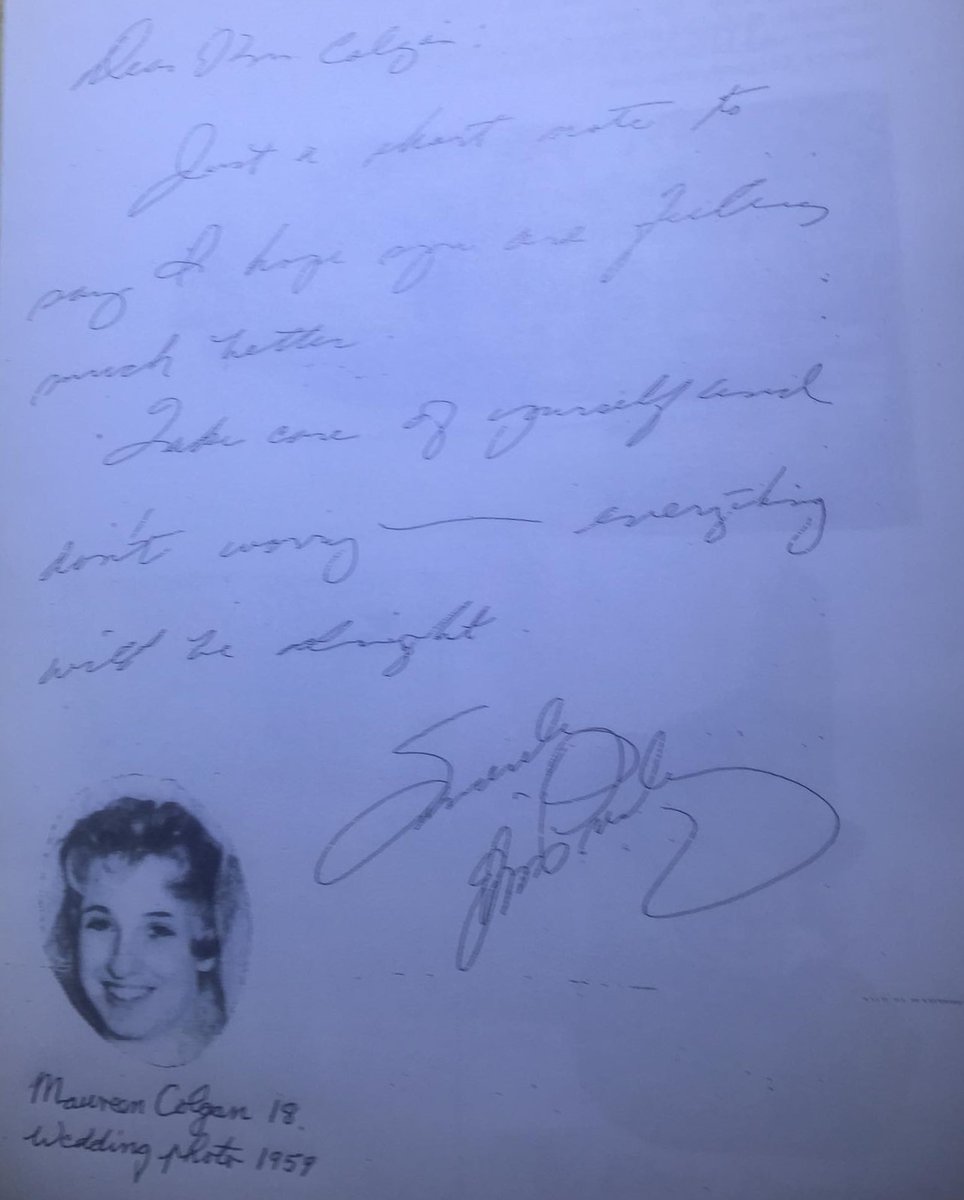 Dear Mrs Colgan:
Just a short note to
say I hope you are feeling
much better.
Take care of yourself and
don't worry — everything
will be alright.
Sincerely
Maureen Colgan 18.
Wedding photo 1959